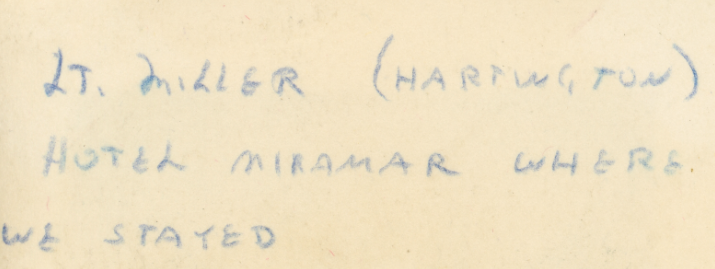 LT. MILLER (HARTINGTON)
HOTEL MIRAMAR WHERE
WE STAYED